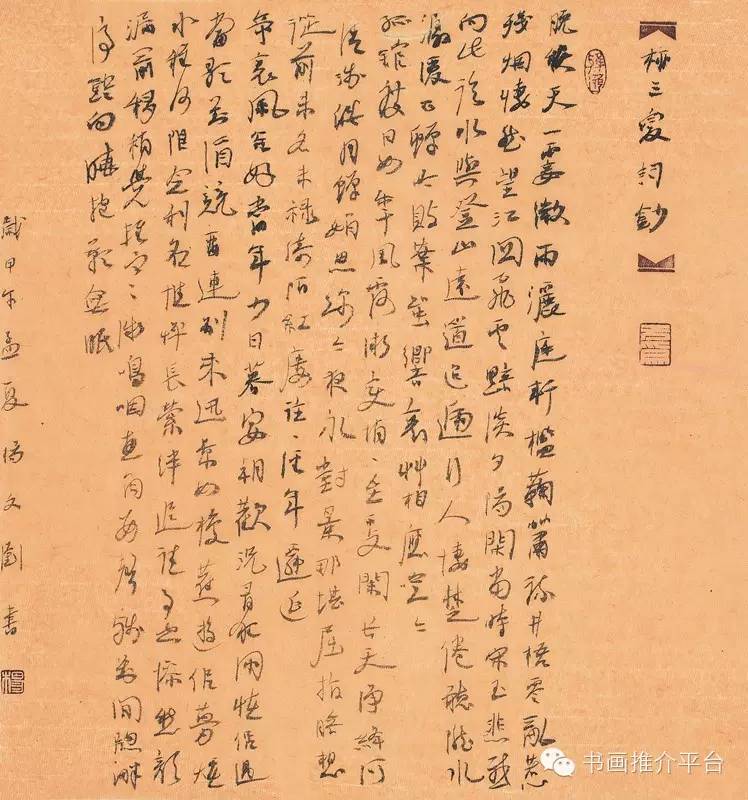 柳三变詞鈔
晚秋天一霎微雨灑庭軒檻菊蕭疏井梧零亂惹
殘烟悽然望江關飛雲黯淡夕陽間當時宋玉悲感
向此臨水與登山遠道迢遞行人悽楚倦聽隴水
潺湲正蟬吟敗葉蛩響衰艸相應喧喧
孤館度日如年風露漸變悄悄至更闌長天净絳河
清淺皓月嬋娟思綿綿夜永對景那堪屈指暗想
從前未名未祿綺陌紅樓往往經年遷延
帝里風光好當年少日暮宴朝歡況有狂朋怪侶遇
當歌對酒競留連別來迅景如梭舊遊似夢烟
水程何限念利名憔悴長縈絆追往事空慘愁顏
漏箭移稍覺輕寒漸嗚咽畫角數聲殘對閒窗畔
停燈向曉抱影無眠
歲甲午孟夏楊文劉書
书画推介平台